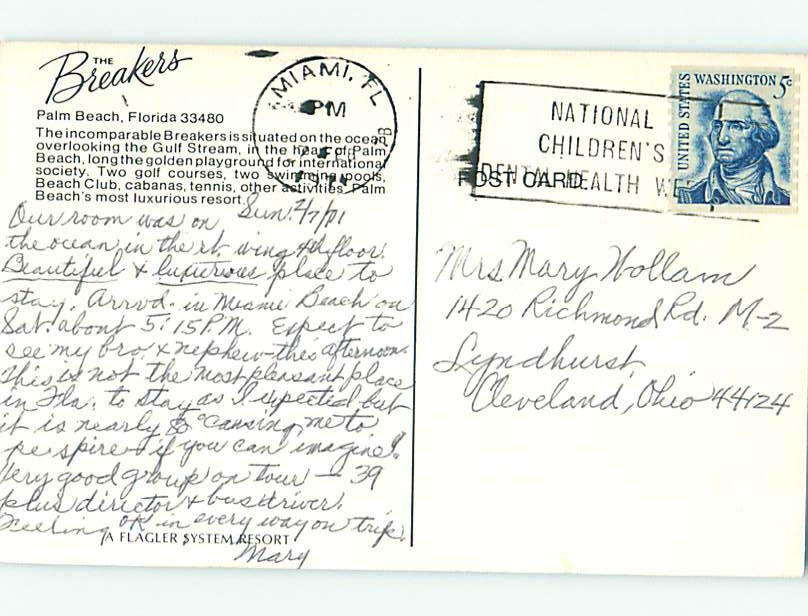 THE
Breakers
Palm Beach, Florida 33480
The incomparable Breakers is situated on the ocean
overlooking the Gulf Stream, in the heart of Palm
Beach, long the golden playground for international
society. Two golf courses, two swimming pools,
Beach Club, cabanas, tennis, other activities. Palm
Beach's most luxurious resort.
Sun. 2/7/
Our room was on
the ocean in the rt. wing 4th floor.
Beautiful & luxurious place to
stay. Arrvd. in Miami Beach on
Sat. about 5:15 P.M. Expect to
see my bro. & nephew this afternoon.
This is not the most pleasant place
in Fla. to stay as I expected but
it is nearly 80° causing me to
perspire if you can imagine!
Very good group on tour - 39
plus director & bus driver.
Feeling OK in every way on trip.
Mary
A FLAGLER SYSTEM RESORT
MIAMI, FL
PM
FEB
NATIONAL
CHILDREN'S
DENTAL HEALTH WE
POST CARD
UNITED STATES
WASHINGTON 5c
Mrs Mary Hollam
1420 Richmond Rd. M-2
Lyndhurst
Cleveland, Ohio 44124